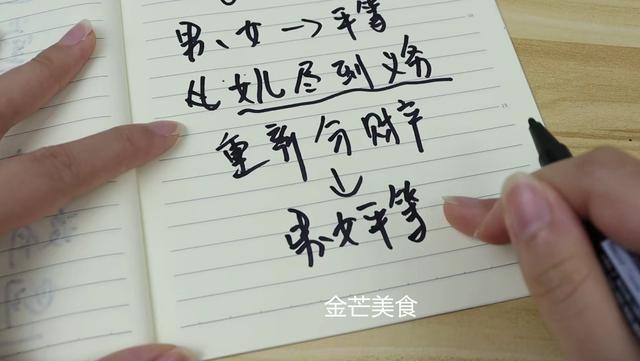 男、女→平等
女儿尽到义务
重新分财产
↓
男女平等
金芒美食